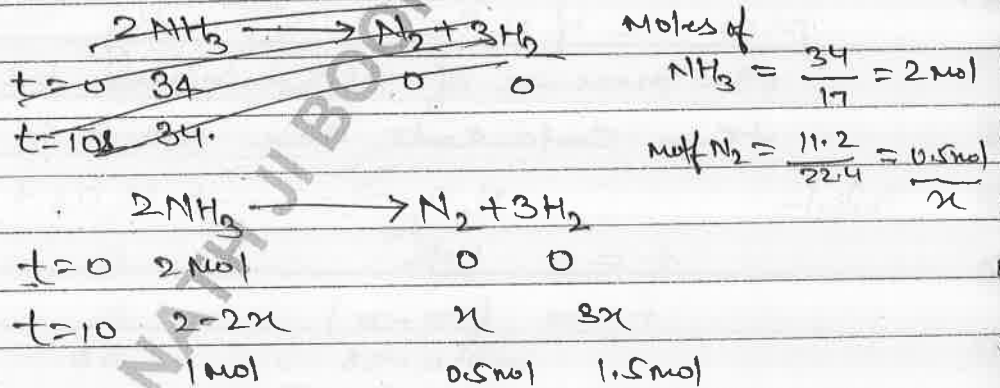 2NH₃ → N₂ + 3H₂
t=0 34 0 0
t=10s 34.
Moles of
NH₃ = 34/17 = 2 mol
mol of N₂ = 11.2/22.4 = 0.5mol
x
2NH₃ → N₂ + 3H₂
t=0 2 mol 0 0
t=10 2-2x x 3x
1 mol 0.5mol 1.5mol
NATH JI BOO